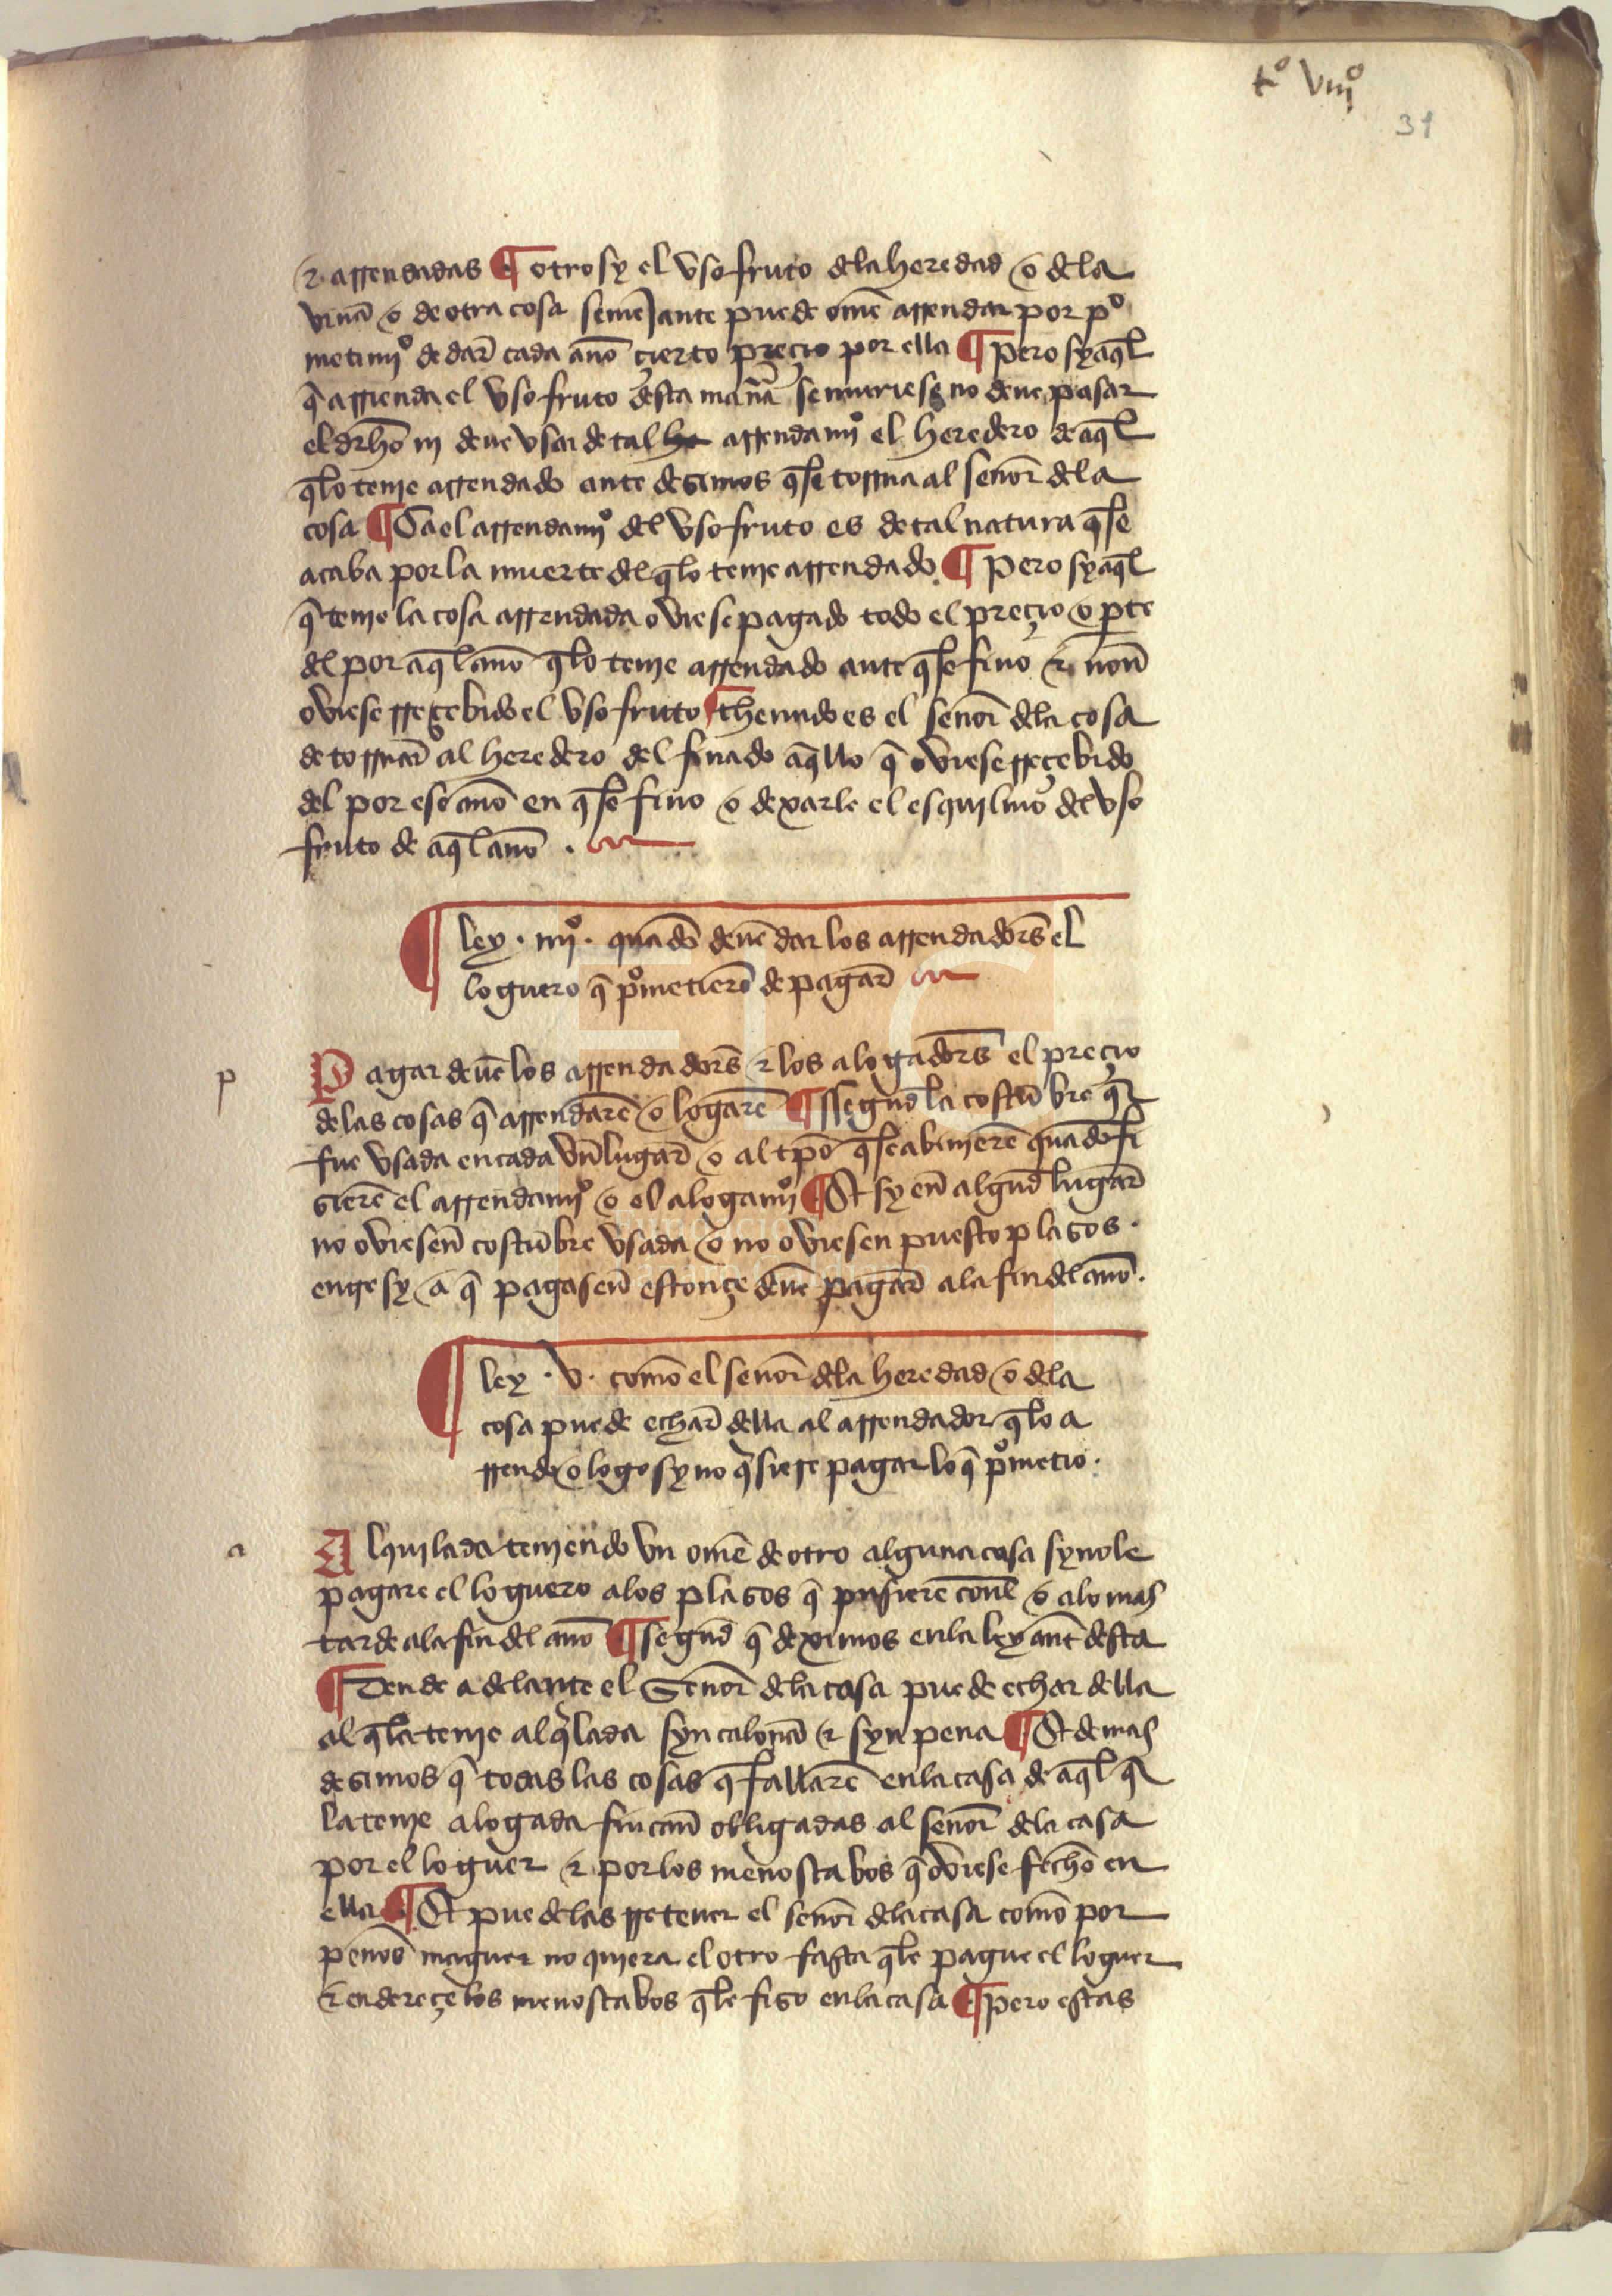 tº viijº
31
& arrendadas ¶ otrosy el vsofruto dela heredad o dela
vinã o de otra cosa semejante puede omẽ arrendar por pº
metimjº de dar̃ cada anõ çierto preçio por ella ¶ Pero sy aq̃l
q̃ arrienda el vsofruto desta manã se muriese no deue pasar
el drh̃o nj deue vsar de tal arrendamjº el heredero de aq̃l
q̃lo tenje arrendado ante desimos q̃se torrna al señor dela
cosa ¶ Ca el arrendamjº del vsofruto es de tal natura q̃se
acaba por la muerte del q̃lo tenje arrendado ¶ Pero sy aq̃l
q̃ tenje la cosa arrendada oviese pagado todo el preçio o pte
del por aq̃l anõ q̃lo tenje arrendado ante q̃se fino & non̄
oviese rreçebido el vsofruto ¶ thenudo es el señor dela cosa
de torrnar̃ al heredero del finado aq̃llo q̃ oviese rreçebido
del por ese anõ en q̃se fino o dexarle el esquilmo del vso
fruto de aq̃l anõ .
¶ ley . iiijº . quãdo deuẽ dar los arrendadores̃ el
loguero q̃ pºmetierõ de pagar̃
p
Pagar deuẽ los arrendadores̃ & los alogadores̃ el preçio
delas cosas q̃ arrendarẽ o logarẽ ¶ ssegũd la costũbre q̃
fue vsada en cada vn̄ lugar̃ o al tp̃o q̃se abinierẽ quãdo fi
sierẽ el arrendamjº o el alogamjº ¶ Et sy en̄ algũd lugar̃
no oviesen̄ costũbre vsada o no oviesen puesto plasos .
entre sy a q̃ pagasen̄ estonçe deuẽ pagar̃ ala fin del anõ .
¶ ley . v . comõ el señor dela heredad o dela
cosa puede echar̃ della al arrendador q̃lo a
rrendo o logo sy no q̃siese pagar lo q̃ pºmetio .
a
Alquilada teniendo vn omẽ de otro alguna casa sy nole
pagare el loguero alos plasos q̃ pusierẽ con̄l o alo mas
tarde ala fin del anõ ¶ segũd q̃ deximos enla ley ant̃ desta
¶ Dende adelante el Señor dela casa puede echar della
al q̃la tenje alq̃lada syn calonã & syn pena ¶ Et demas
desimos q̃ todas las cosas q̃ fallarẽ enla casa de aq̃l q̃
la tenje alogada fincan̄ obligadas al señor dela casa
por el loguer & por los menoscabos q̃ oviese fechõ en
ella ¶ Et puedelas rretener el señor dela casa comõ por
penõs maguer no quiera el otro fasta q̃le pague el loguer
& endereçe los menoscabos q̃le fiso enla casa ¶ pero estas